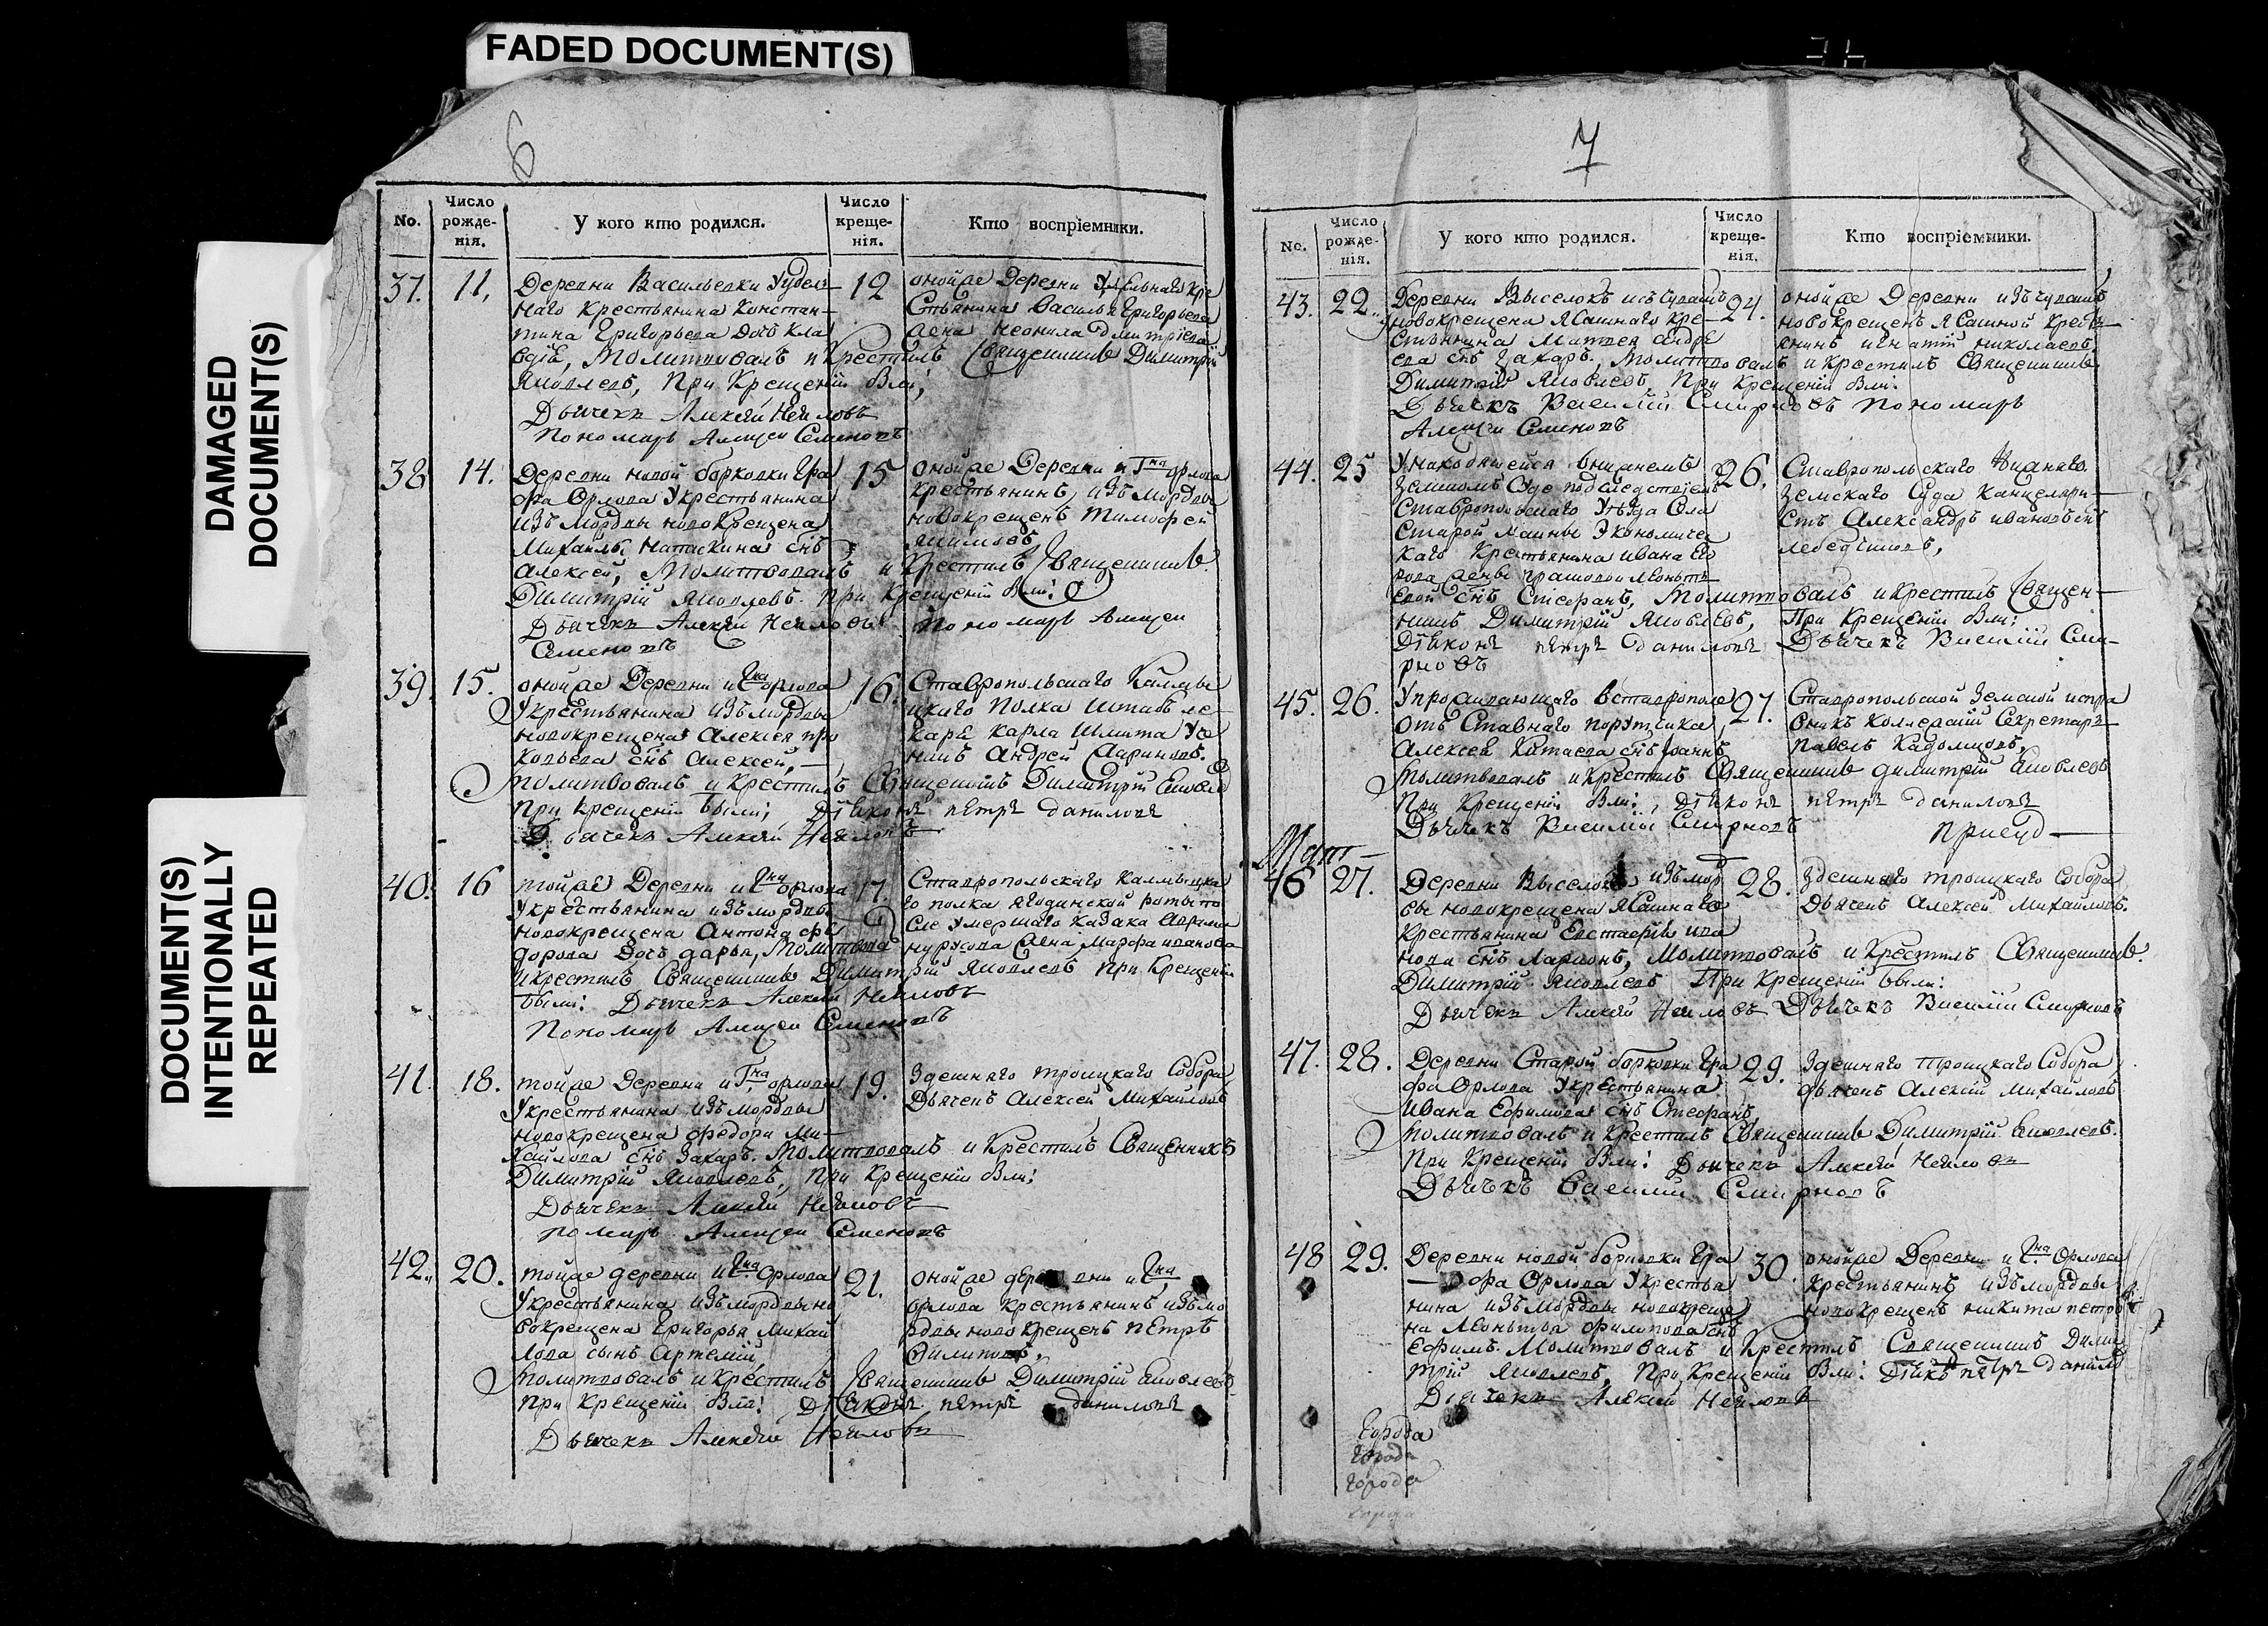 FADED DOCUMENT(S)
DAMAGED
DOCUMENT(S)
DOCUMENT(S)
INTENTIONALLY
REPEATED
6
No.
Число рожденія.
У кого кто родился.
Число крещенія.
Кто воспріемники.
37. 11.
Деревни Васильевки Удель-
наго Крестьянина Констан-
тина Григорьева дочь Кла
вдія, Молитвовалъ и Крестилъ Священникъ Димитрій
Яковлевъ, При Крещеніи Были;
Дьячекъ Алексей Неиловъ
Пономарь Семеновъ
12
оной же Деревни Удельнаго Кре
стьянина Василья Григорьева
жена Неонила Дмитріева
38 14.
Деревни новой борковки Гра
фа Орлова У крестьянина
изъ Мордвы новокрещена
Михаилы сынъ
Алексей, Молитвовалъ и Крестилъ Священникъ
Димитрій Яковлевъ. При Крещеніи Были:
Дьячекъ Алексей Неиловъ Пономарь
Семеновъ
15
оной же Деревни и Гна орлова
Крестьянинъ изъ Мордвы
новокрещенъ Тимофей
39. 15.
оной же Деревни и Гна орлова
У крестьянина изъ мордвы
новокрещена Алексея про
кофьева снъ Алексей,
Молитвовалъ и Крестилъ Священникъ Димитрій Яковлев
При крещеніи были; Діаконъ петръ даниловъ
Дьячекъ Алексей Неиловъ
16.
Ставропольскаго Калмы
цкаго Полка Штабъ ле
каря Карла Шмита Уче
никъ Андрей
40. 16
той же Деревни и Гна орлова
У крестьянина изъ мордвы
новокрещена Антона фе
дорова дочь дарья, Молитвова
и крестилъ Священникъ Димитрій Яковлевъ При Крещеніи
были: Дьячекъ Алексей Неиловъ
Пономарь Семеновъ
17.
Ставропольскаго калмыцка
го полка Ягодинской роты
умершаго казака
жена Марфа иванова
41 18.
той же Деревни и Гна орлова
У крестьянина изъ мордвы
новокрещена федора Ми-
хайлова снъ Захаръ. Молитвовалъ и Крестилъ Священникъ
Димитрій Яковлевъ, При Крещеніи Были:
Дьячекъ Алексей Неиловъ
Семеновъ
19.
Здешняго троицкаго Собора
Дьячекъ Алексей Михайловъ
42. 20.
той же деревни и Гна Орлова
У крестьянина изъ мордвы но
вокрещена Григорья Михай
лова сынъ Артемій,
Молитвовалъ и крестилъ Священникъ Димитрій Яковлевъ
При Крещеніи Были: Діаконъ петръ даниловъ
Дьячекъ Алексей Неиловъ
21.
оной же деревни и Гна
орлова крестьянинъ изъ мо
рдвы новокрещенъ петръ
Филиповъ.
7
No.
Число рожденія.
У кого кто родился.
Число крещенія.
Кто воспріемники.
43. 22.
Деревни Выселокъ изъ чувашъ
новокрещена Ясашнаго кре-
стьянина Матвея Андре
ева снъ Захаръ, Молитвовалъ и крестилъ Священникъ
Димитрій Яковлевъ, При крещеніи Были:
Дьячекъ Василій Смирновъ Пономарь
Семеновъ
24.
оной же Деревни изъ чувашъ
новокрещенъ Ясашной Кресть
янинъ игнатій николаевъ,
44. 25
У находящейся в нижнемъ
Земскомъ Суде под следствіемъ
Ставропольскаго Уезда Села
Старой Маины Экономичес
каго Крестьянина ивана
снъ Стефанъ, Молитвовалъ и крестилъ Священ-
никъ Димитрій Яковлевъ, При Крещеніи Были:
Діаконъ петръ даниловъ Дьячекъ Василій Сми-
рновъ
26.
Ставропольскаго Нижняго
Земскаго Суда Канцеляри-
стъ Александръ ивановъ снъ
45. 26.
У проживающаго в Ставрополе
отъ Ставнаго порутчика
Алексея Китаева снъ Іоаннъ
Молитвовалъ и крестилъ Священникъ димитрій Яковлевъ
При Крещеніи Были: Діаконъ петръ даниловъ
Дьячекъ Василій Смирновъ
27.
Ставропольской Земской испра
вникъ коллежскій Секретарь
Павелъ Кадомцовъ,
46 27.
Деревни Выселокъ изъ мор
вы новокрещена Ясашнаго
Крестьянина Евстафія ива
нова снъ Ларіонъ, Молитвовалъ и Крестилъ Священникъ.
Димитрій Яковлевъ При крещеніи были:
Дьячекъ Алексей Неиловъ Дьячекъ Василій Смирновъ
28.
Здешняго троицкаго Собора
Дьячекъ Алексей Михайловъ.
47. 28.
Деревни Старой борковки Гра
фа Орлова У крестьянина
Ивана Ефимова снъ Стефанъ
Молитвовалъ и Крестилъ Священникъ Димитрій Яковлевъ.
При Крещеніи Были: Дьячекъ Алексей Неиловъ
Дьячекъ Василій Смирновъ
29.
Здешняго Троицкаго Собора
дьячекъ Алексій Михайловъ
48 29.
Деревни новой борковки Гра
фа Орлова У крестья
нина изъ мордвы новокреще
на Леонтья филипова снъ
Ефимъ. Молитвовалъ и Крестилъ Священникъ Дими
трій Яковлевъ, При Крещеніи Были: петръ данило
Дьячекъ Алексей Неиловъ
30.
оной же Деревни и Гна Орлова
Крестьянинъ изъ мордвы
новокрещенъ никита петро
города
города
города
города